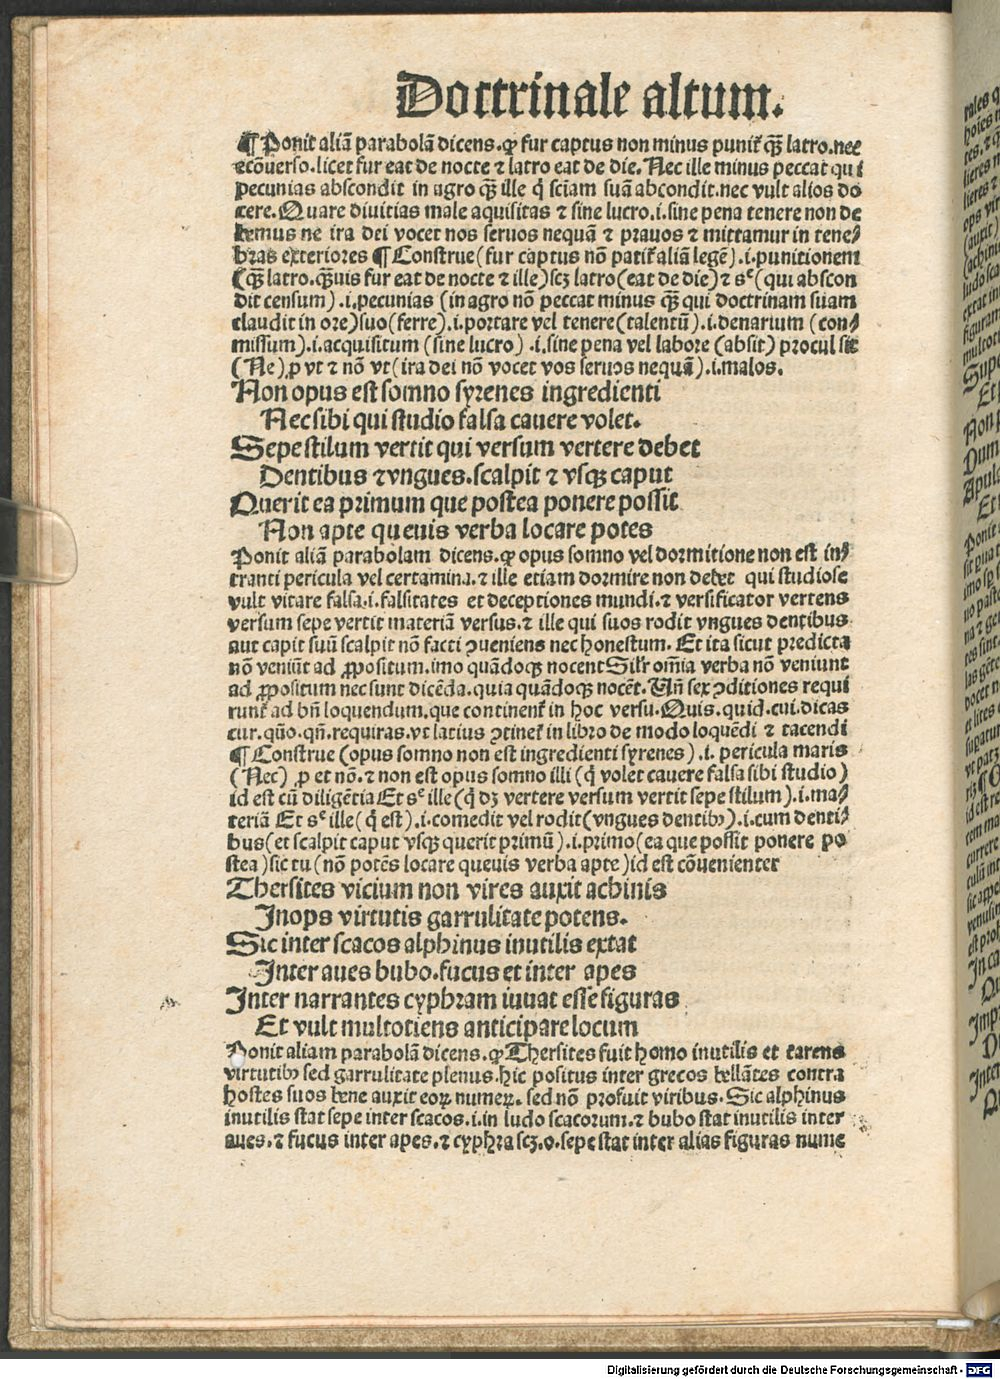 Doctrinale altum.
¶ Ponit aliā parabolā dicens. ꝙ fur captus non minus punit̄ qȝ latro. nec
ecōuerso. licet fur eat de nocte ⁊ latro eat de die. Nec ille minus peccat qui
pecunias abscondit in agro qȝ ille q̇ sciam̄ suā abcondit. nec vult alios do
cere. Quare diuitias male aquisitas ⁊ sine lucro .i. sine pena tenere non de
bemus ne ira dei vocet nos seruos nequā ⁊ prauos ⁊ mittamur in tene⸗
bras exteriores ¶ Construe (fur captus nō patit̄ aliā legē) .i. punitionem
(qȝ latro. qȝuis fur eat de nocte ⁊ ille) scȝ latro (eat de die) ⁊ sᵉ (qui abscon
dit censum) .i. pecunias (in agro nō peccat minus qȝ qui doctrinam suam
claudit in ore) suo (ferre) .i. portare vel tenere (talentū) .i. denarium (con⸗
missum) .i. acquisitum (sine lucro) .i. sine pena vel labore (absit) procul sit
(Ne) ꝓ vt ⁊ nō vt (ira dei nō vocet vos seruos nequā) .i. malos.
Non opus est somno syrenes ingredienti
Nec sibi qui studio falsa cauere volet.
Sepe stilum vertit qui versum vertere debet
Dentibus ⁊ vngues. scalpit ⁊ vsqȝ caput
Querit ea primum que postea ponere possit
Non apte queuis verba locare potes
Ponit aliā parabolam dicens. ꝙ opus somno vel dormitione non est in⸗
tranti pericula vel certamina. ⁊ ille etiam dormire non debet qui studiose
vult vitare falsa .i. falsitates et deceptiones mundi. ⁊ versificator vertens
versum sepe vertit materiā versus. ⁊ ille qui suos rodit vngues dentibus
aut capit suū scalpit nō facti ꝯueniens nec honestum. Et ita sicut predicta
nō veniūt ad ꝓpositum. imo quādoqȝ nocent Silr̄ om̄ia verba nō veniunt
ad ꝓpositum nec sunt dicēda. quia quādoqȝ nocēt. Vn̄ sex ꝯditiones requi
runt̄ ad bn̄ loquendum. que continent̄ in hoc versu. Quis. quid. cui. dicas
cur. quō. qn̄. requiras. vt latius ꝯtinet̄ in libro de modo loquēdi ⁊ tacendi
¶ Construe (opus somno non est ingredienti syrenes) .i. pericula maris
(Nec) ꝓ et nō. ⁊ non est opus somno illi (q̇ volet cauere falsa sibi studio)
id est cū diligētia Et sᵉ ille (q̇ dȝ vertere versum vertit sepe stilum) .i. ma⸗
teriā Et sᵉ ille (q̇ est) .i. comedit vel rodit (vngues dentibꝰ) .i. cum denti⸗
bus (et scalpit caput vsqȝ querit primū) .i. primo (ea que possit ponere po
stea) sic tu (nō potēs locare queuis verba apte) id est cōuenienter
Thersites vicium non vires auxit achinis
Inops virtutis garrulitate potens.
Sic inter scacos alphinus inutilis extat
Inter aues bubo. fucus et inter apes
Inter narrantes cyphram iuuat esse figuras
Et vult multotiens anticipare locum
Ponit aliam parabolā dicens. ꝙ Thersites fuit homo inutilis et carens
virtutibꝰ sed garrulitate plenus. hic positus inter grecos bellātes contra
hostes suos bene auxit eoꝝ numeꝝ. sed nō profuit viribus. Sic alphinus
inutilis stat sepe inter scacos .i. in ludo scacorum. ⁊ bubo stat inutilis inter
aues. ⁊ fucus inter apes. ⁊ cyphra scȝ .o. sepe stat inter alias figuras nume
Digitalisierung gefördert durch die Deutsche Forschungsgemeinschaft - DFG